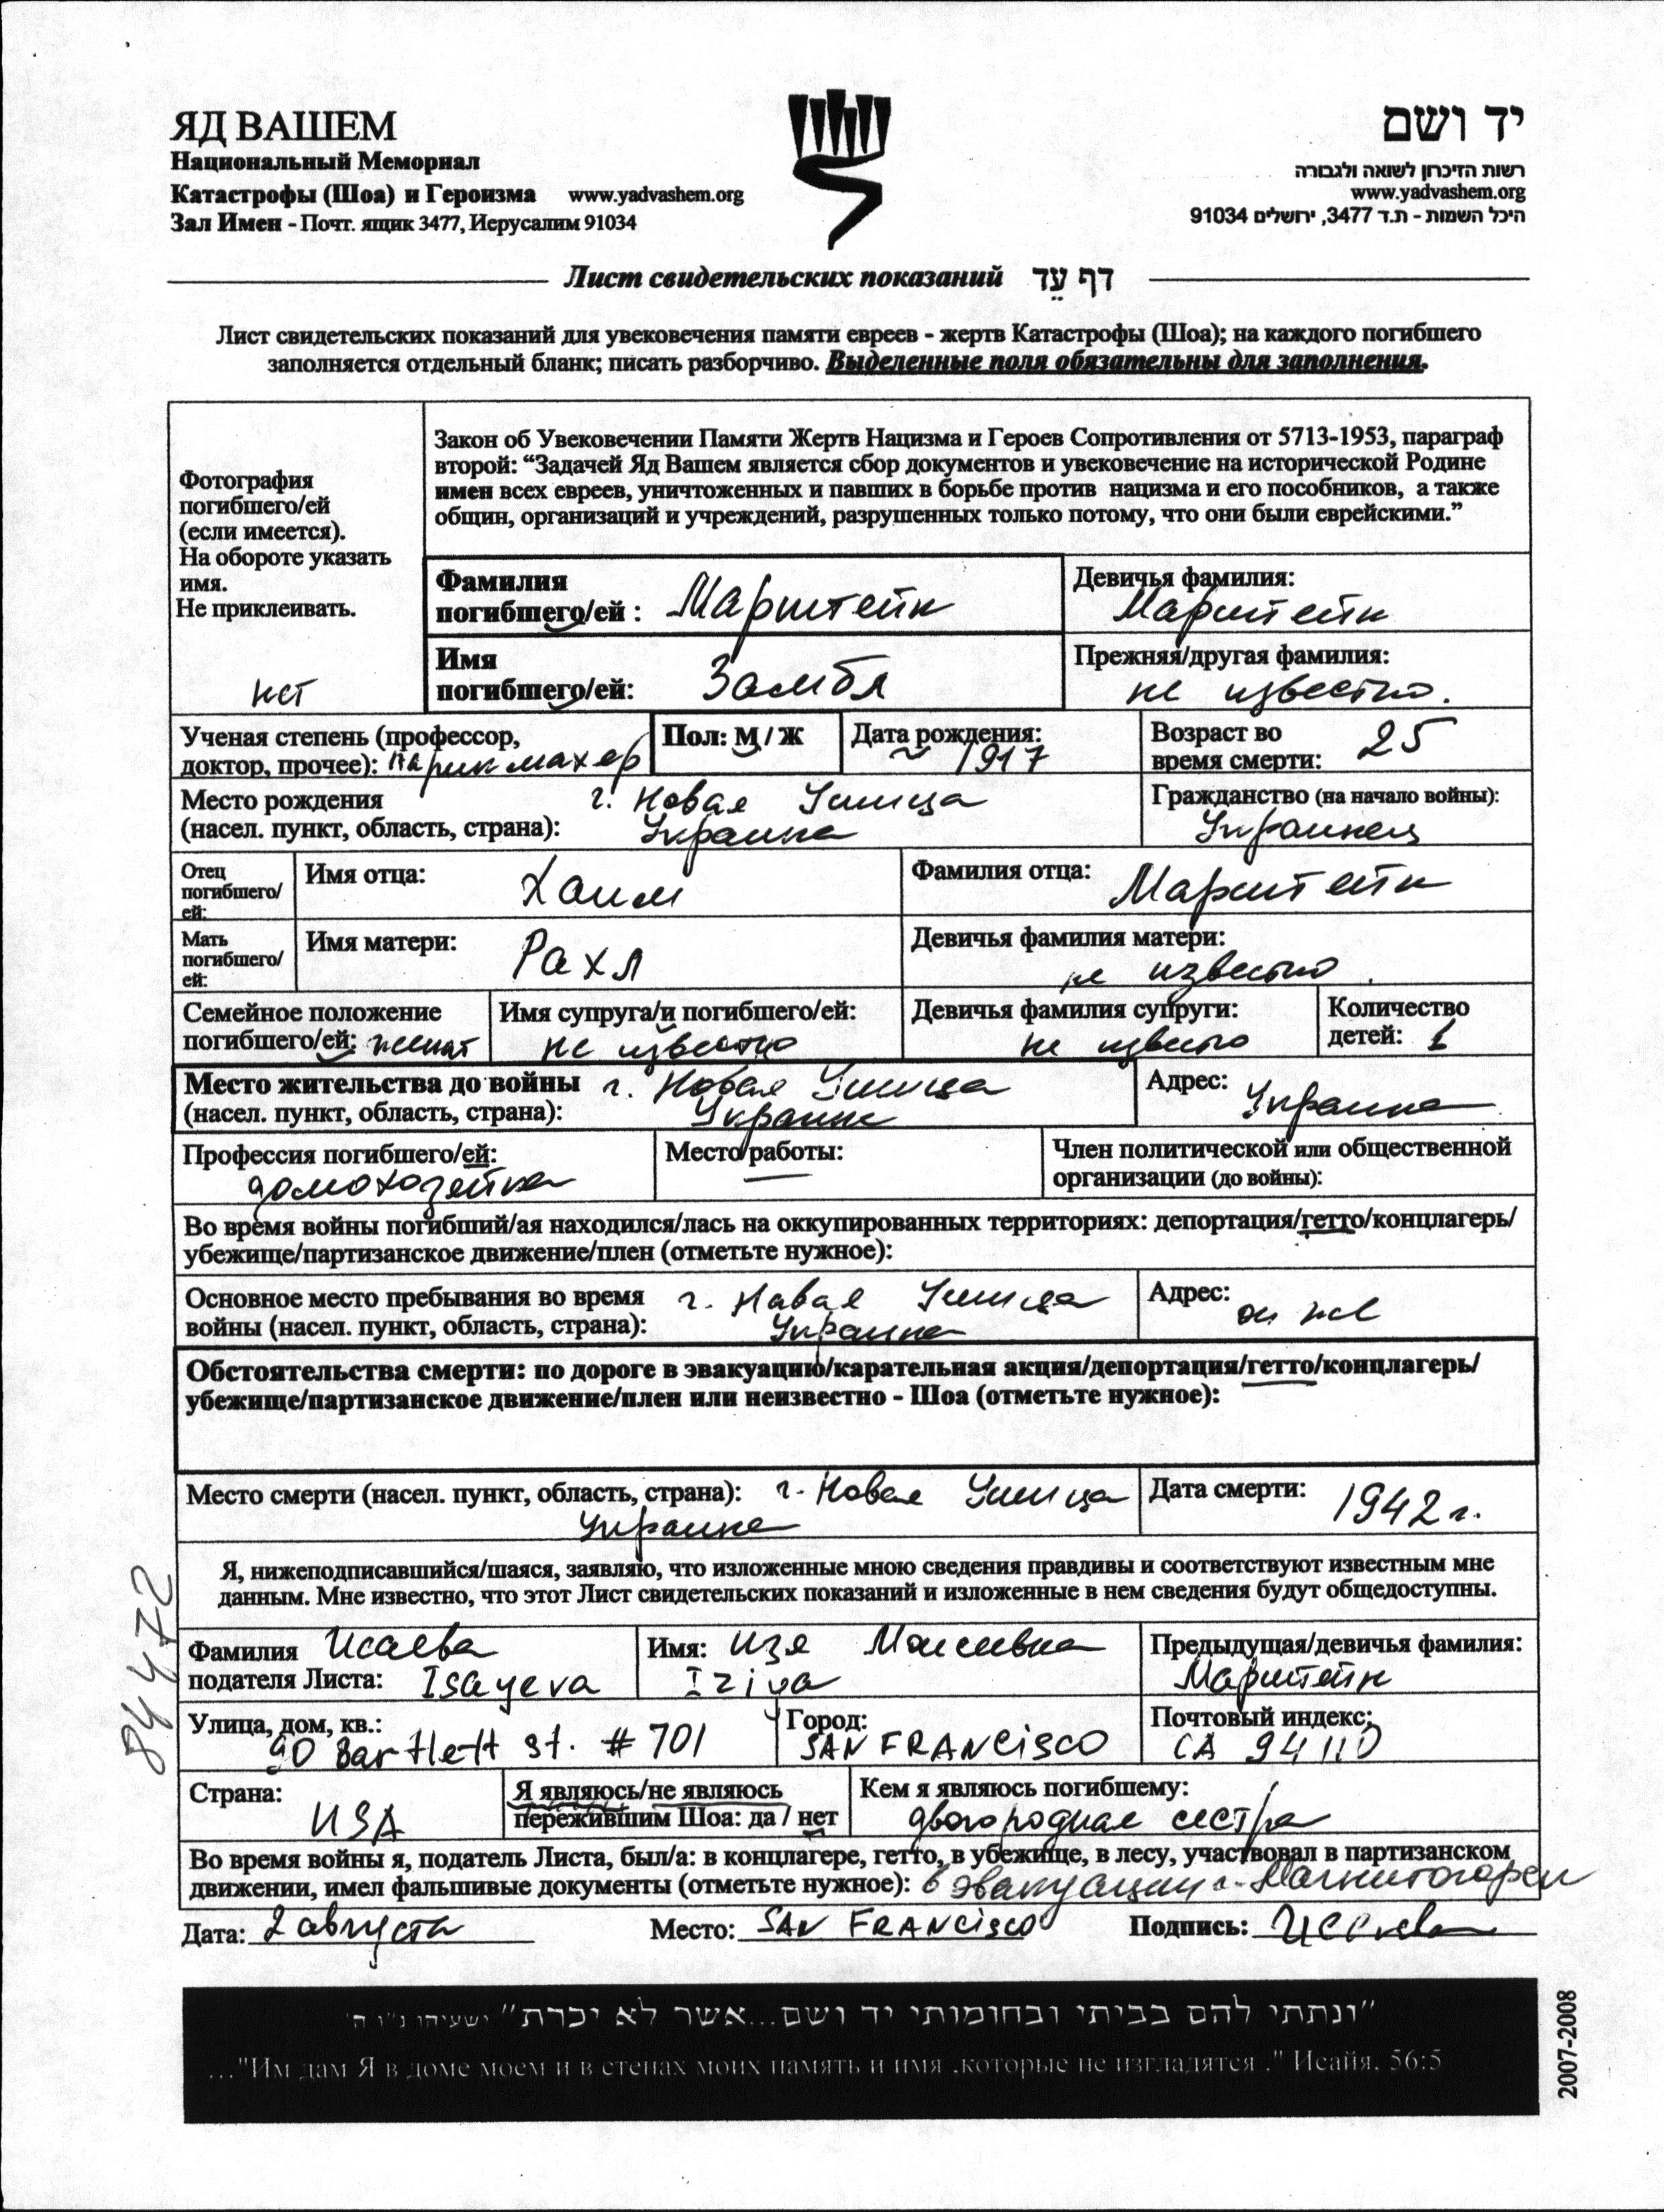 ЯД ВАШЕМ
Национальный Мемориал
Катастрофы (Шоа) и Героизма www.yadvashem.org
Зал Имен - Почт. ящик 3477, Иерусалим 91034
יד ושם
רשות הזיכרון לשואה ולגבורה
www.yadvashem.org
היכל השמות - ת.ד 3477, ירושלים 91034
Лист свидетельских показаний דף עֵד
Лист свидетельских показаний для увековечения памяти евреев - жертв Катастрофы (Шоа); на каждого погибшего
заполняется отдельный бланк; писать разборчиво. Выделенные поля обязательны для заполнения.
Фотография
погибшего/ей
(если имеется).
На обороте указать
имя.
Не приклеивать.
нет
Закон об Увековечении Памяти Жертв Нацизма и Героев Сопротивления от 5713-1953, параграф
второй: “Задачей Яд Вашем является сбор документов и увековечение на исторической Родине
имен всех евреев, уничтоженных и павших в борьбе против нацизма и его пособников, а также
общин, организаций и учреждений, разрушенных только потому, что они были еврейскими.”
Фамилия
погибшего/ей : Марштейн
Девичья фамилия:
Марштейн
Имя
погибшего/ей: Замбл
Прежняя/другая фамилия:
не известно.
Ученая степень (профессор,
доктор, прочее): парикмахер
Пол: М / Ж
Дата рождения:
~ 1917
Возраст во
время смерти: 25
Место рождения г. Новая Ушица
(насел. пункт, область, страна): Украина
Гражданство (на начало войны):
Украинец
Отец
погибшего/
ей:
Имя отца: Хаим
Фамилия отца: Марштейн
Мать
погибшего/
ей:
Имя матери: Рахл
Девичья фамилия матери:
не известно.
Семейное положение
погибшего/ей: женат
Имя супруга/и погибшего/ей:
не известно
Девичья фамилия супруги:
не извесно
Количество
детей: 1
Место жительства до войны г. Новая Ушица
(насел. пункт, область, страна): Украине
Адрес: Украина
Профессия погибшего/ей:
домохозейка
Место работы:
—
Член политической или общественной
организации (до войны):
Во время войны погибший/ая находился/лась на оккупированных территориях: депортация/гетто/концлагерь/
убежище/партизанское движение/плен (отметьте нужное):
Основное место пребывания во время г. Навая Ушица
войны (насел. пункт, область, страна): Украина
Адрес:
он же
Обстоятельства смерти: по дороге в эвакуацию/карательная акция/депортация/гетто/концлагерь/
убежище/партизанское движение/плен или неизвестно - Шоа (отметьте нужное):
Место смерти (насел. пункт, область, страна): г. Новая Ушица
Украина
Дата смерти: 1942 г.
Я, нижеподписавшийся/шаяся, заявляю, что изложенные мною сведения правдивы и соответствуют известным мне
данным. Мне известно, что этот Лист свидетельских показаний и изложенные в нем сведения будут общедоступны.
84472
Фамилия Исаева
подателя Листа: Isayeva
Имя: Изя Моисеевна
Предыдущая/девичья фамилия:
Марштейн
Улица, дом, кв.:
90 Bartlett st. # 701
Город:
SAN FRANCISCO
Почтовый индекс:
CA 94110
Страна:
USA
Я являюсь/не являюсь
пережившим Шоа: да / нет
Кем я являюсь погибшему:
двогородная сестра
Во время войны я, податель Листа, был/а: в концлагере, гетто, в убежище, в лесу, участвовал в партизанском
движении, имел фальшивые документы (отметьте нужное): в эвакуации г. Магнитогорск
Дата: 2 августа Место: SAN FRANCISCO Подпись:
"ונתתי להם בביתי ובחומותי יד ושם...אשר לא יכרת" ישעיהו נ"ו ה'
..."Им дам Я в доме моем и в стенах моих память и имя ,которые не изгладятся ." Исайя. 56:5
2007-2008